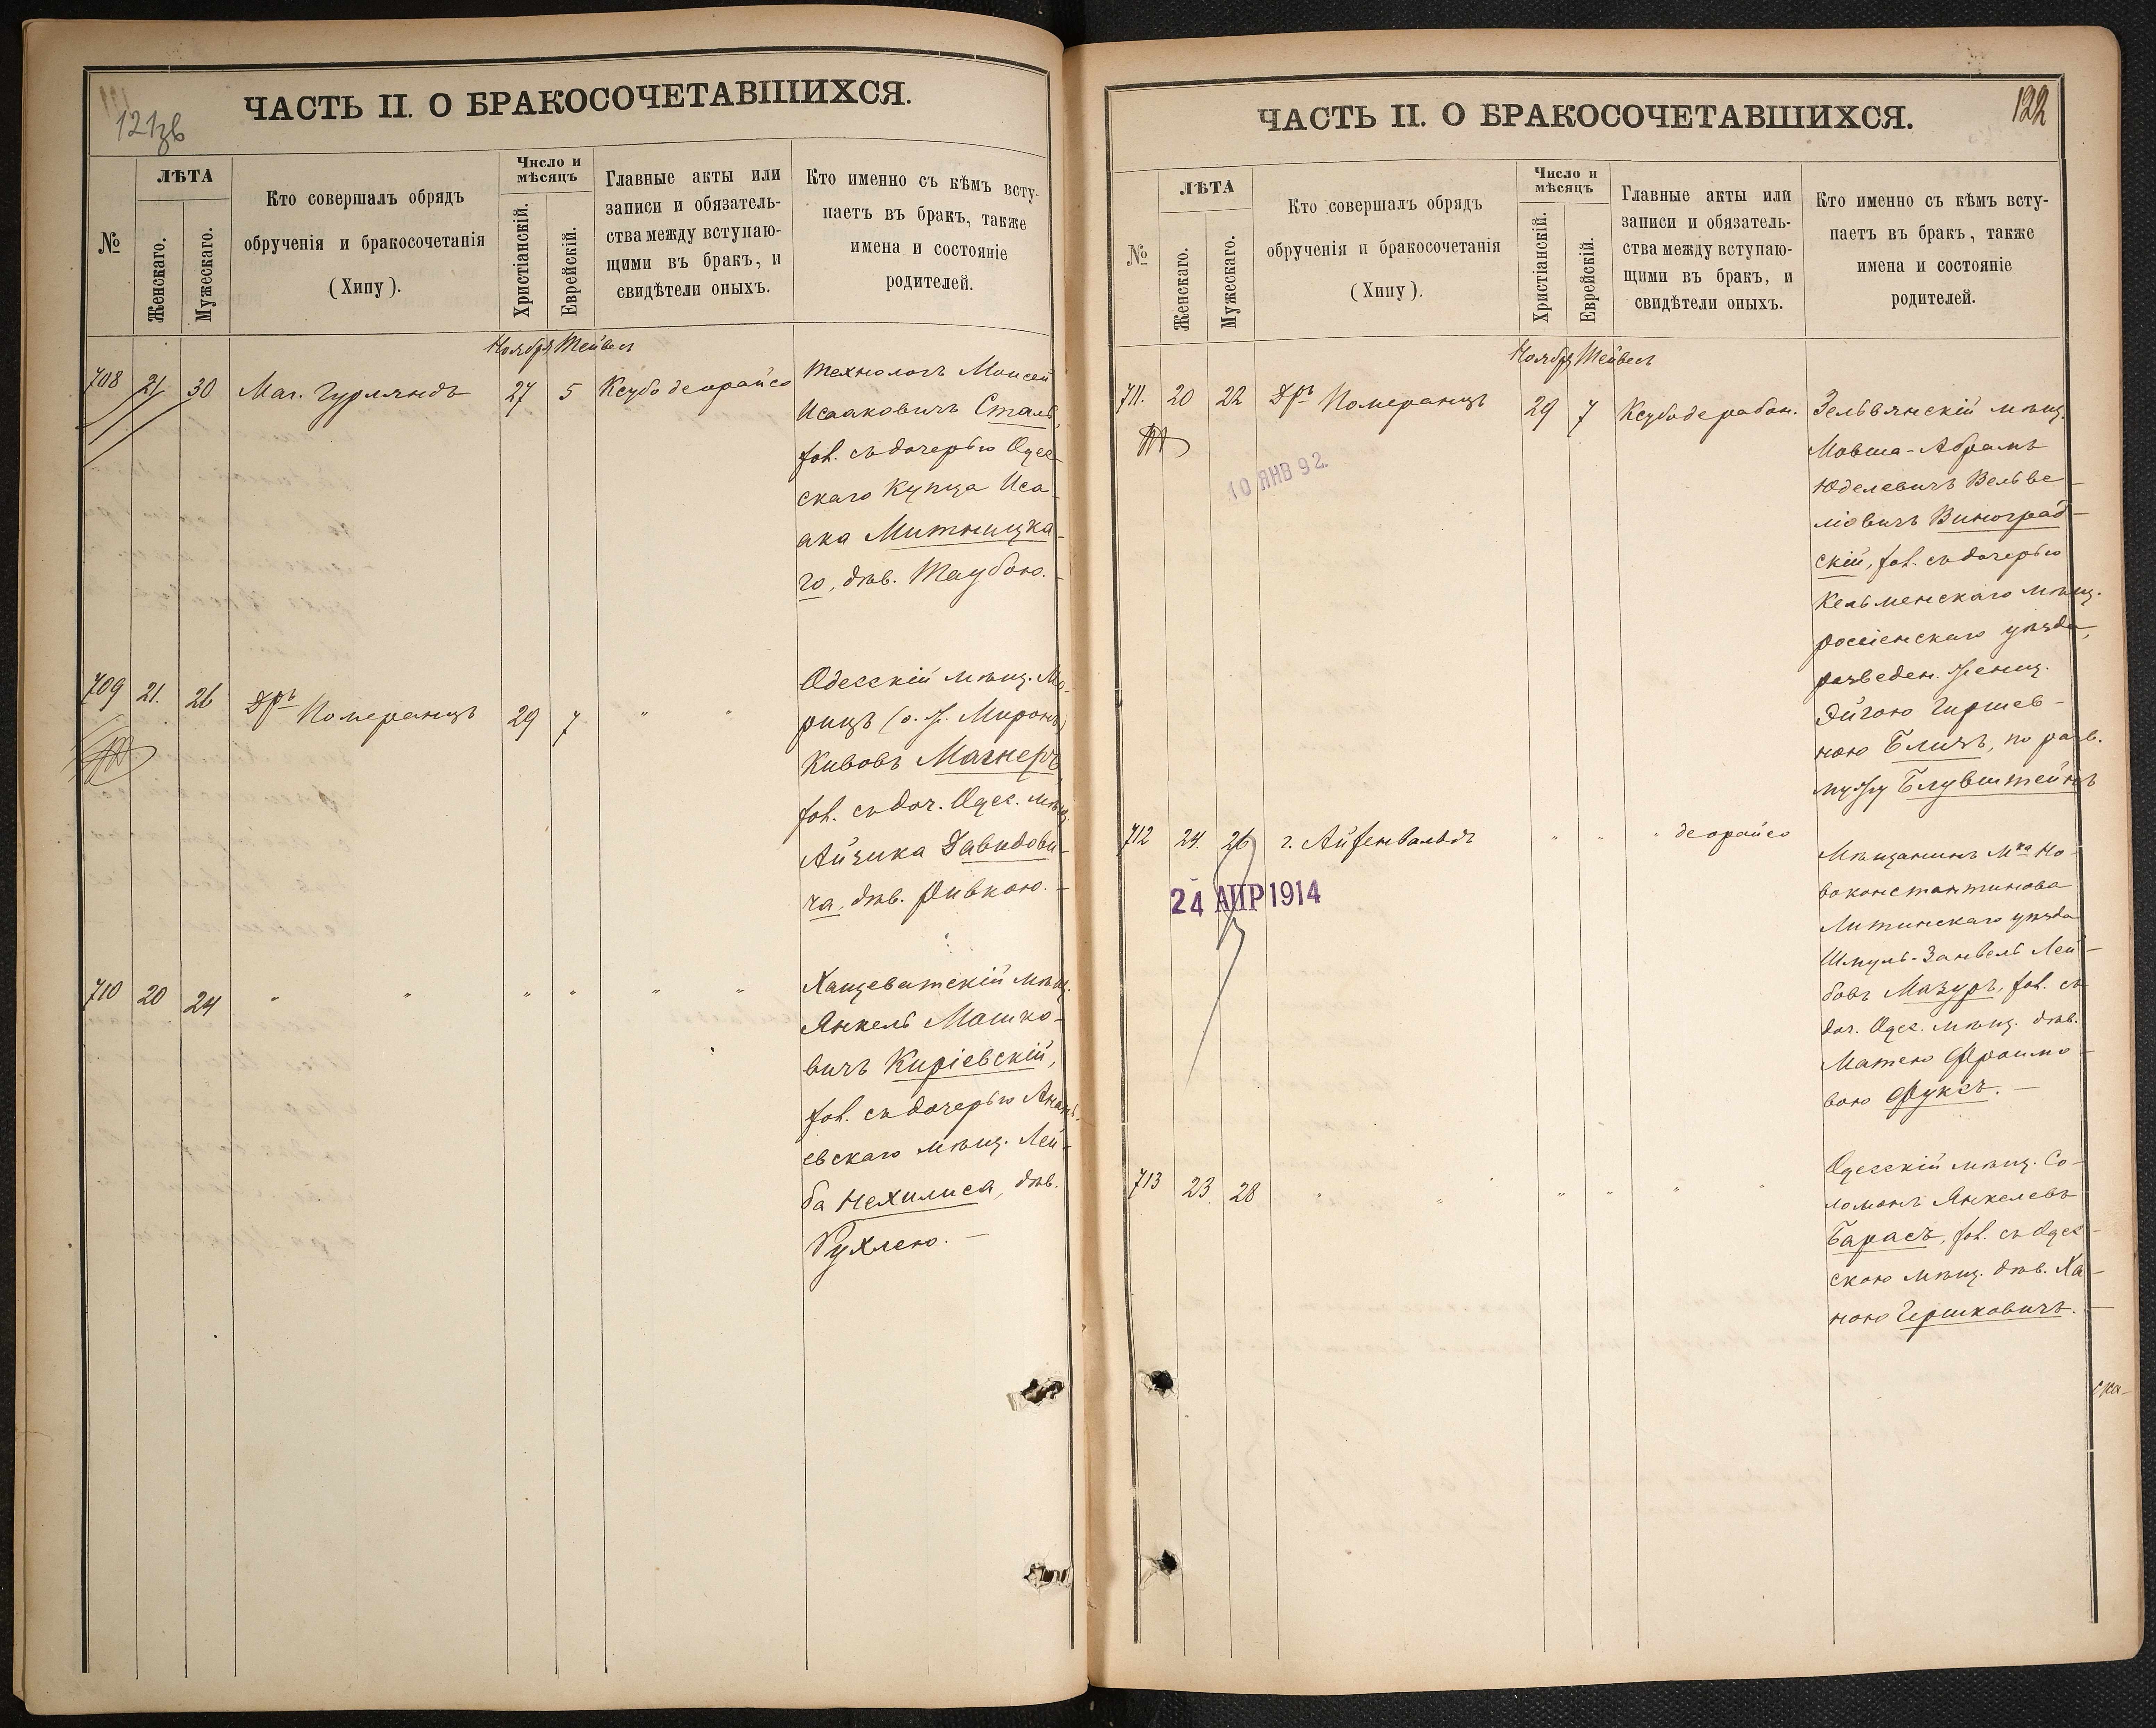 121зв
ЧАСТЬ II. О БРАКОСОЧЕТАВШИХСЯ.
№
ЛѢТА
Женскаго.
Мужескаго.
Кто совершалъ обрядъ
обрученія и бракосочетанія
(Хипу).
Число и
мѣсяцъ
Христіанскій.
Еврейскій.
Главные акты или
записи и обязатель-
ства между вступаю-
щими въ бракъ, и
свидѣтели оныхъ.
Кто именно съ кѣмъ всту-
паетъ въ бракъ, также
имена и состояніе
родителей.
Ноября Тейвесъ
708 21 30 Маг. Гурляндъ 27 5 Ксубо деорайсо
Технологъ Моисей
Исааковичъ Сталь,
fов. съ дочерью Одес-
скаго Купца Иса-
ака Митницка-
го, дѣв. Таубою.
709 21. 26 Дръ Померанцъ 29 7 " "
Одесскій мѣщ. Мо-
рицъ (о. ж. Миронъ)
Кивовъ Магнеръ
fов. съ доч. Одес. мѣщ.
Айзика Давидови-
ча, дѣв. Ривкою. –
710 20 24 " " " " " "
Хащеватскій мѣщ.
Янкель Мошко-
вичъ Киріевскій,
fов. съ дочерью Анань-
евскаго мѣщ. Лей-
ба Нехилиса, дѣв.
Рухлею. –
122
ЧАСТЬ II. О БРАКОСОЧЕТАВШИХСЯ.
№
ЛѢТА
Женскаго.
Мужескаго.
Кто совершалъ обрядъ
обрученія и бракосочетанія
(Хипу).
Число и
мѣсяцъ
Христіанскій.
Еврейскій.
Главные акты или
записи и обязатель-
ства между вступаю-
щими въ бракъ, и
свидѣтели оныхъ.
Кто именно съ кѣмъ всту-
паетъ въ бракъ, также
имена и состояніе
родителей.
Ноября Тейвесъ
711. 20 22 Дръ Померанцъ 29 7 Ксубо де рабон.
10 ЯНВ 92.
Зельвянскій мѣщ.
Мовша-Абрамъ
Юделевичъ Вельве-
ліовичъ Виноград-
скій, fов. съ дочерью
Кельменскаго мѣщ.
россіенскаго уѣзда,
разведен. женщ.
Эйгою Гиршев-
ною Блихъ, по разв.
мужу Блувштейнъ
712 24. 26 г. Айзенвальдъ " " " деорайсо
24 АПР 1914
Мѣщанинъ Мка Но-
воконстантинова
Литинскаго уѣзда
Шмуль-Занвель Лей-
бовъ Мазуръ, fов. съ
доч. Одес. мѣщ. дѣв.
Матею Фроимо-
вою Фуксъ. –
713 23. 28 " " " " " "
Одесскій мѣщ. Со-
ломонъ Янкелевъ
Барасъ, fов. съ Одес-
скою мѣщ. дѣв. Ха-
ною Гершковичъ. –